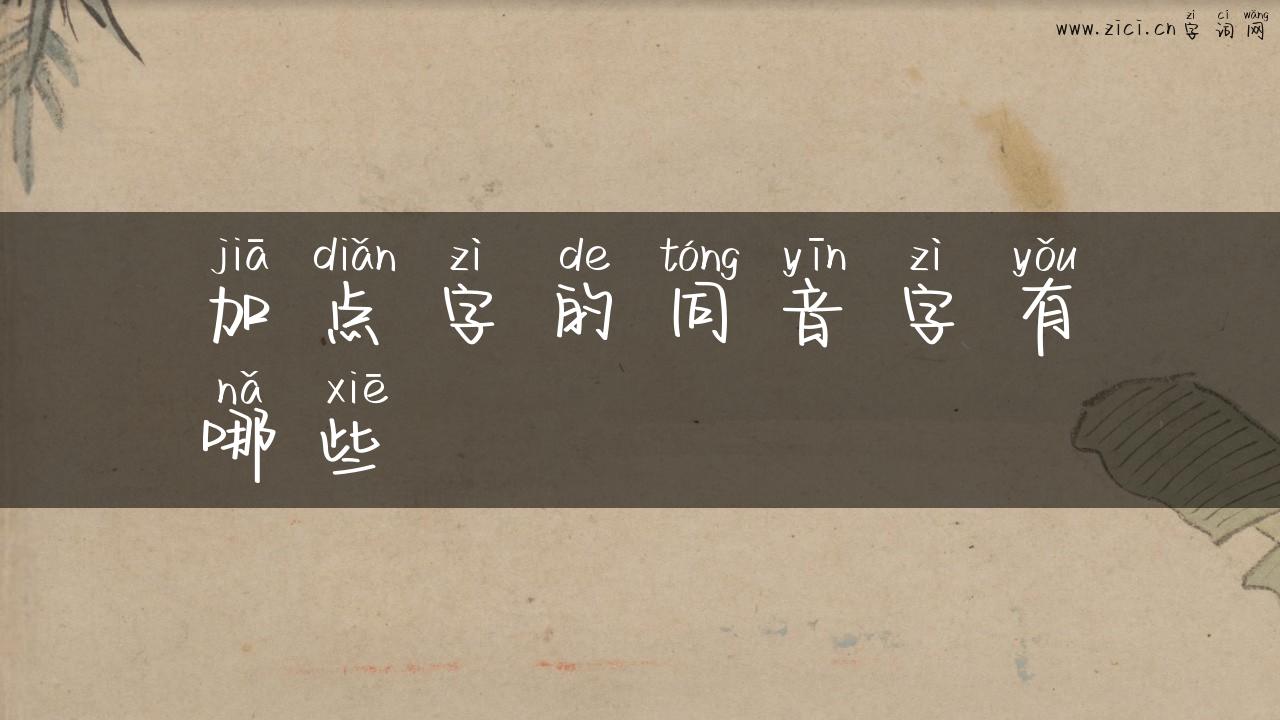 zì cí wǎng
www.zici.cn 字词网
jiā diǎn zì de tóng yīn zì yǒu
加点字的同音字有
nǎ xiē
哪些